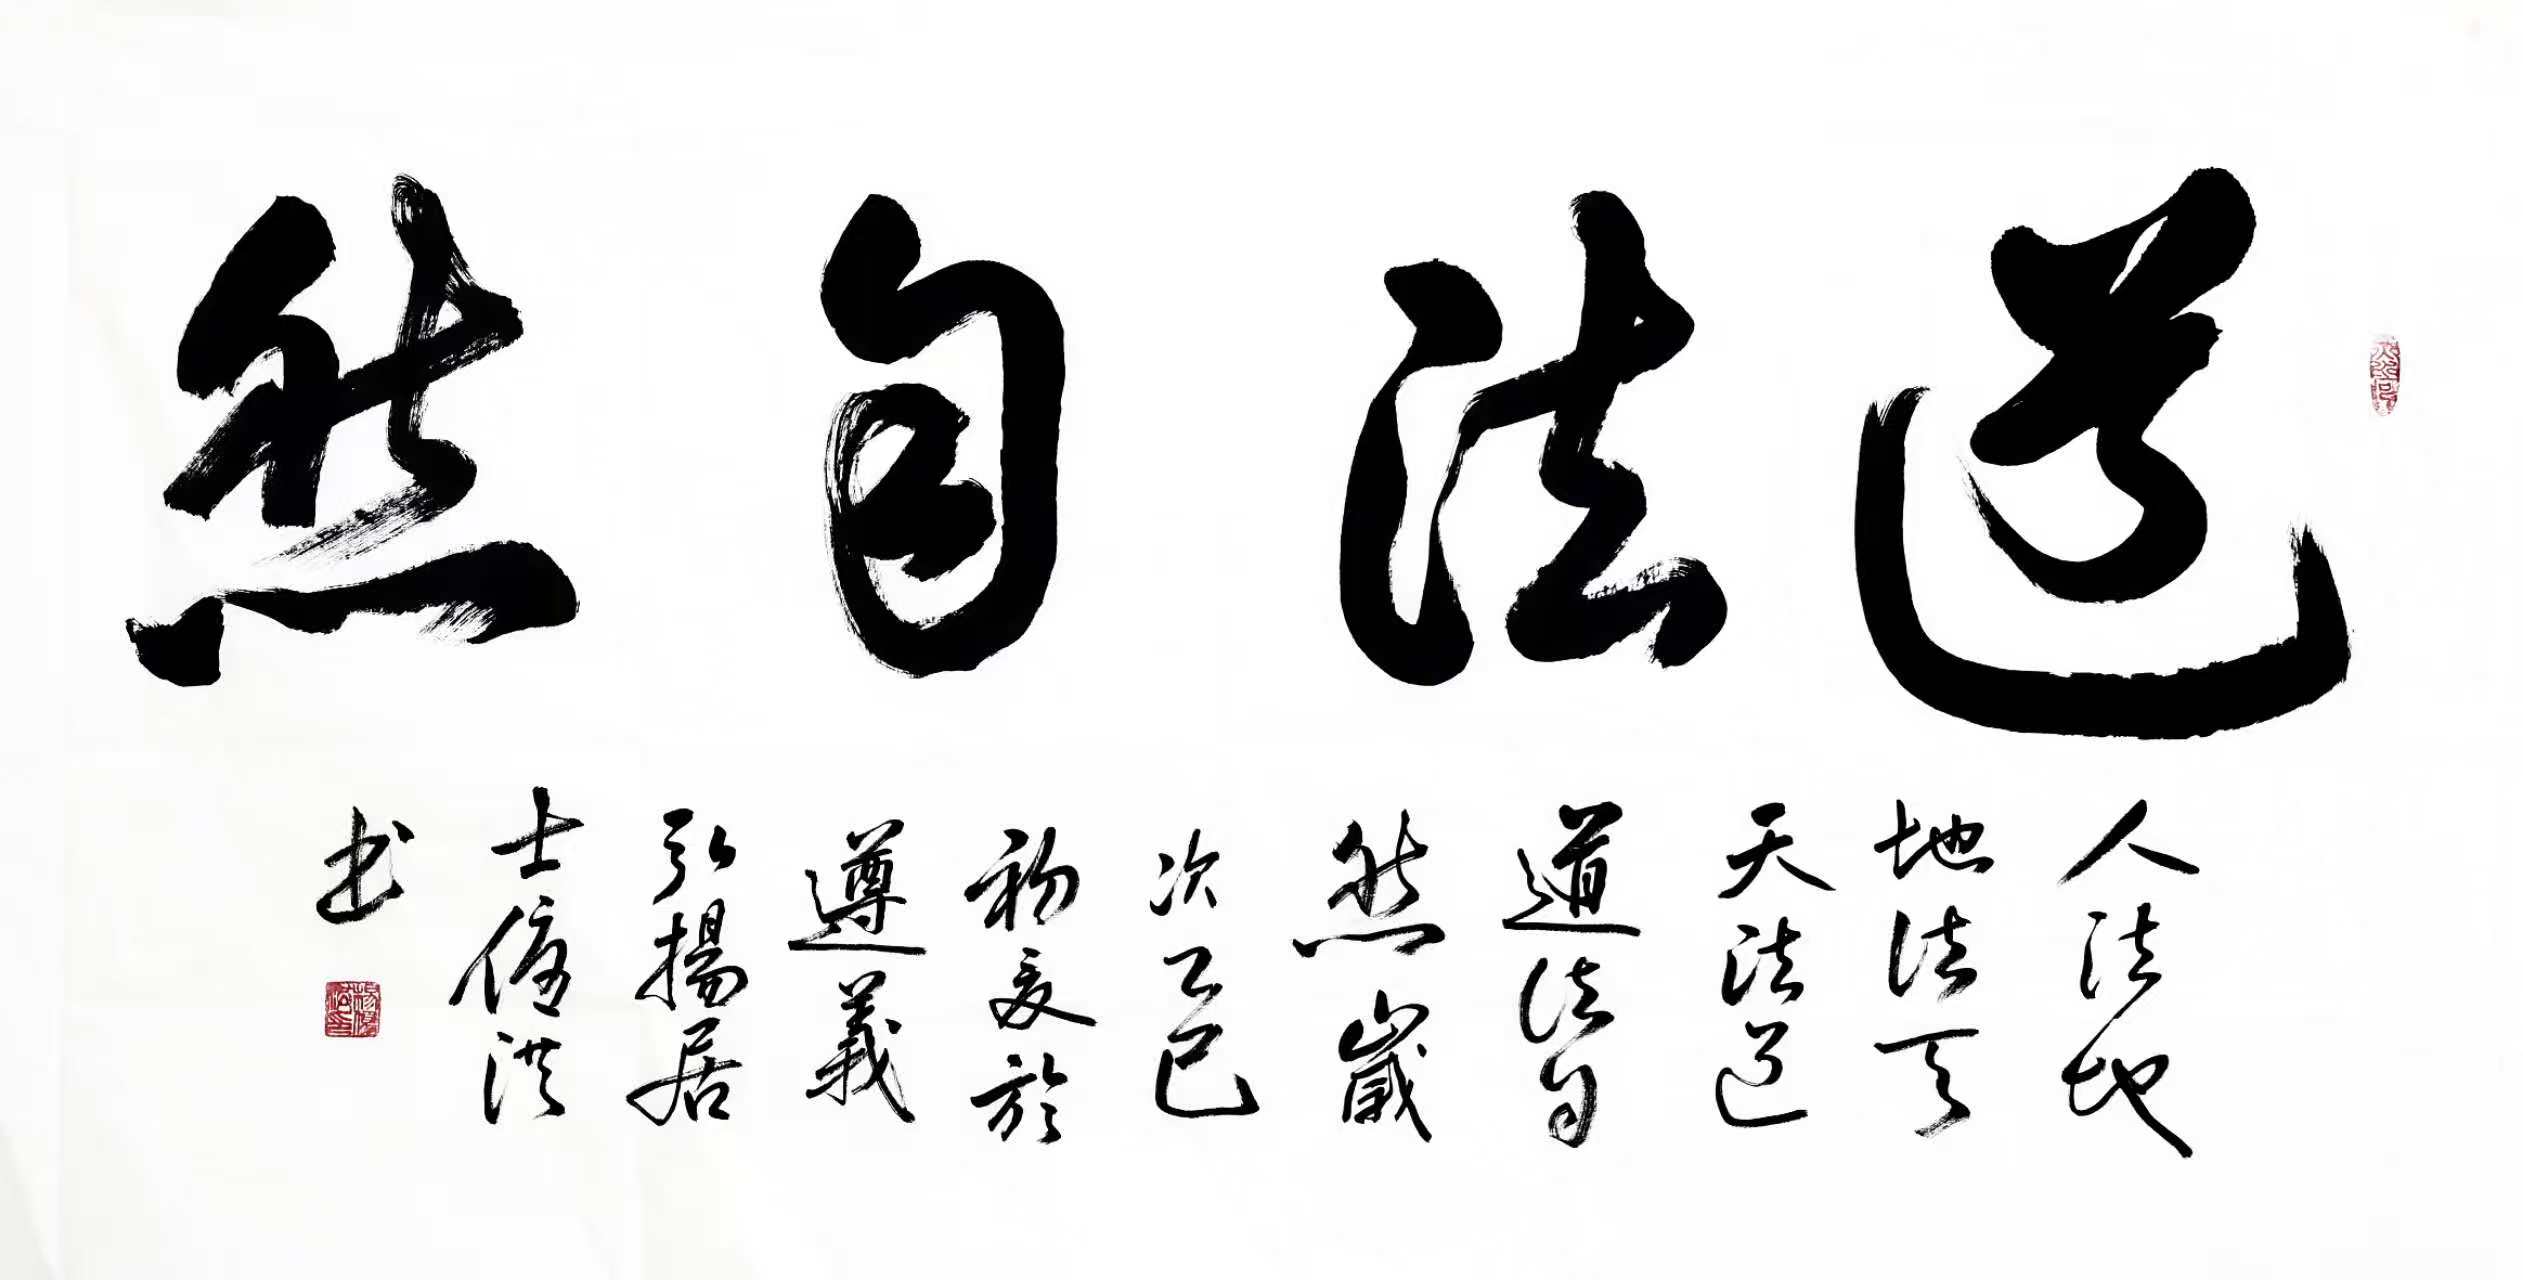 道法自然
人法地
地法天
天法道
道法自
然歲
次乙巳
初夏於
遵義
弘揚居
士洪
書